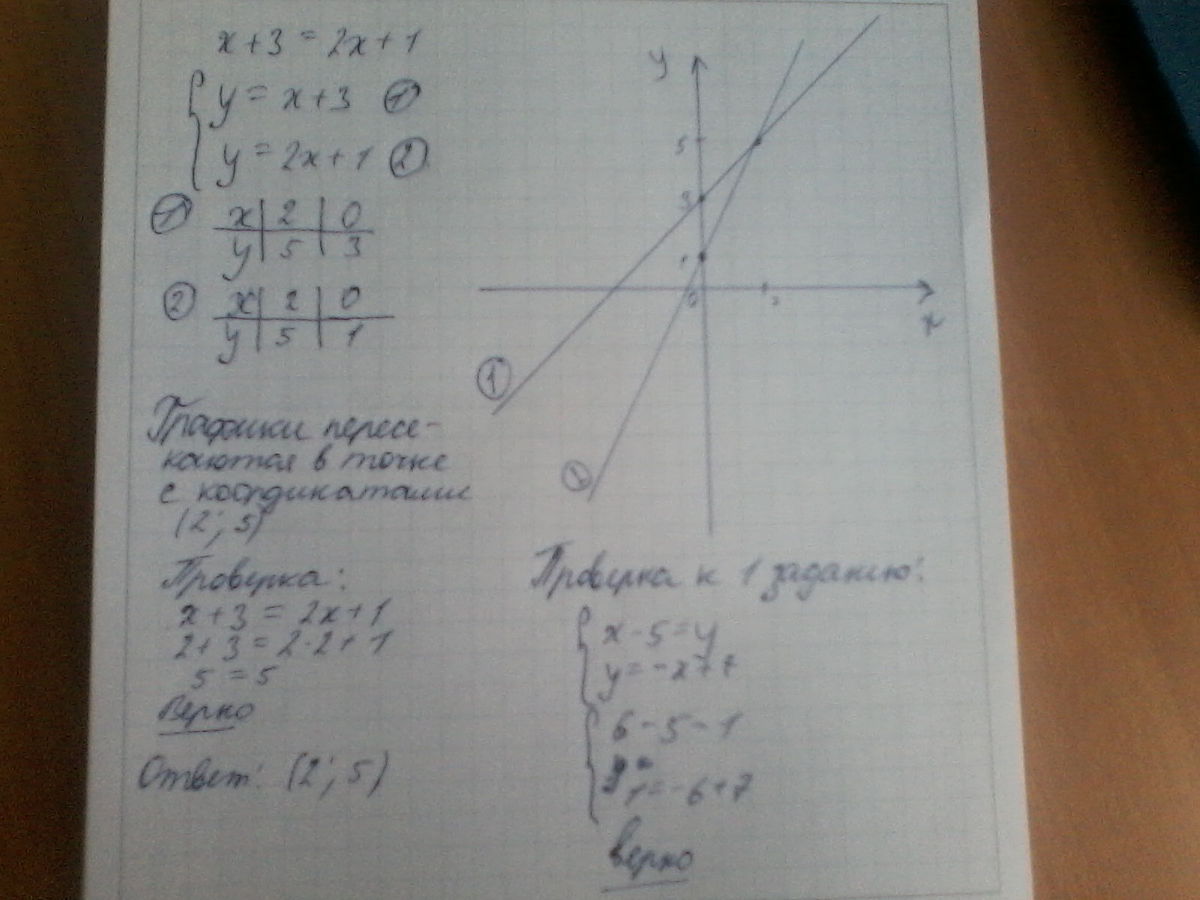 x+3=2x+1
y=x+3 ①
y=2x+1 ②
① x | 2 | 0
y | 5 | 3
② x | 2 | 0
y | 5 | 1
Графики пересе-
каются в точке
с координатами
(2; 5)
Проверка:
x+3=2x+1
2+3=2·2+1
5=5
Верно
Ответ: (2; 5)
y
5
3
1
0
2
x
①
Проверка к 1 заданию:
x-5=y
y=-x+7
6-5-1
1=-6+7
верно